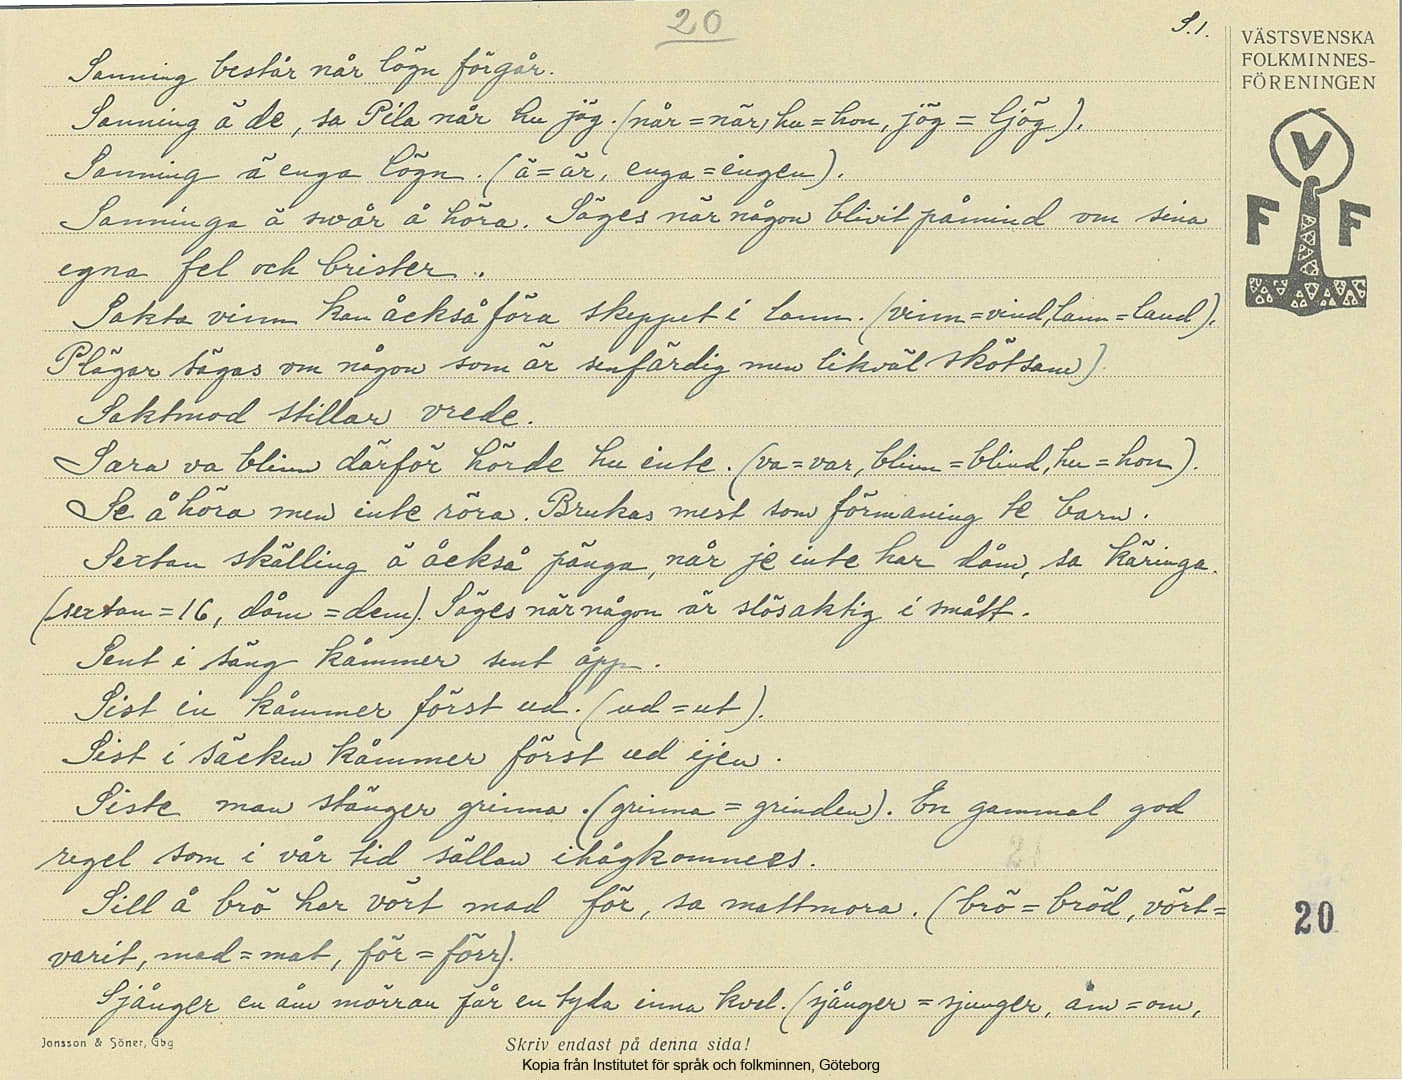 20
S.1.
VÄSTSVENSKA
FOLKMINNES-
FÖRENINGEN
V
F F
Sanning består når lögn förgår.
Sanning ä de, sa Pila når hu jög. (når = när, hu = hon, jög = ljög).
Sanning ä enga lögn. (ä = är, enga = ingen).
Sanninga ä svår å höra. Säges när någon blivit påmind om sina
egna fel och brister.
Sakta vinn kan åckså föra skeppet i lann. (vinn = vind, lann = land).
Plägar sägas om någon som är senfärdig men likväl skötsam)
Saktmod stillar vrede.
Sara va blinn därför hörde hu inte. (va = var, blinn = blind, hu = hon).
Se å höra men inte röra. Brukas mest som förmaning te barn.
Sextan skälling ä åckså pänga, når je inte har dåm, sa käringa.
(sextan = 16, dåm = dem). Säges när någon är slösaktig i smått.
Sent i säng kåmmer sent åpp.
Sist in kåmmer först ud. (ud = ut).
Sist i säcken kåmmer först ud ijen.
Siste man stänger grinna. (grinna = grinden). En gammal god
regel som i vår tid sällan ihågkommes.
Sill å brö har vört mad för, sa mattmora. (brö = bröd, vört =
varit, mad = mat, för = förr).
Sjånger en åm mörran får en tyda inna kvel. (sjånger = sjunger, åm = om,
20
Jonsson & Söner, Gbg
Skriv endast på denna sida!
Kopia från Institutet för språk och folkminnen, Göteborg